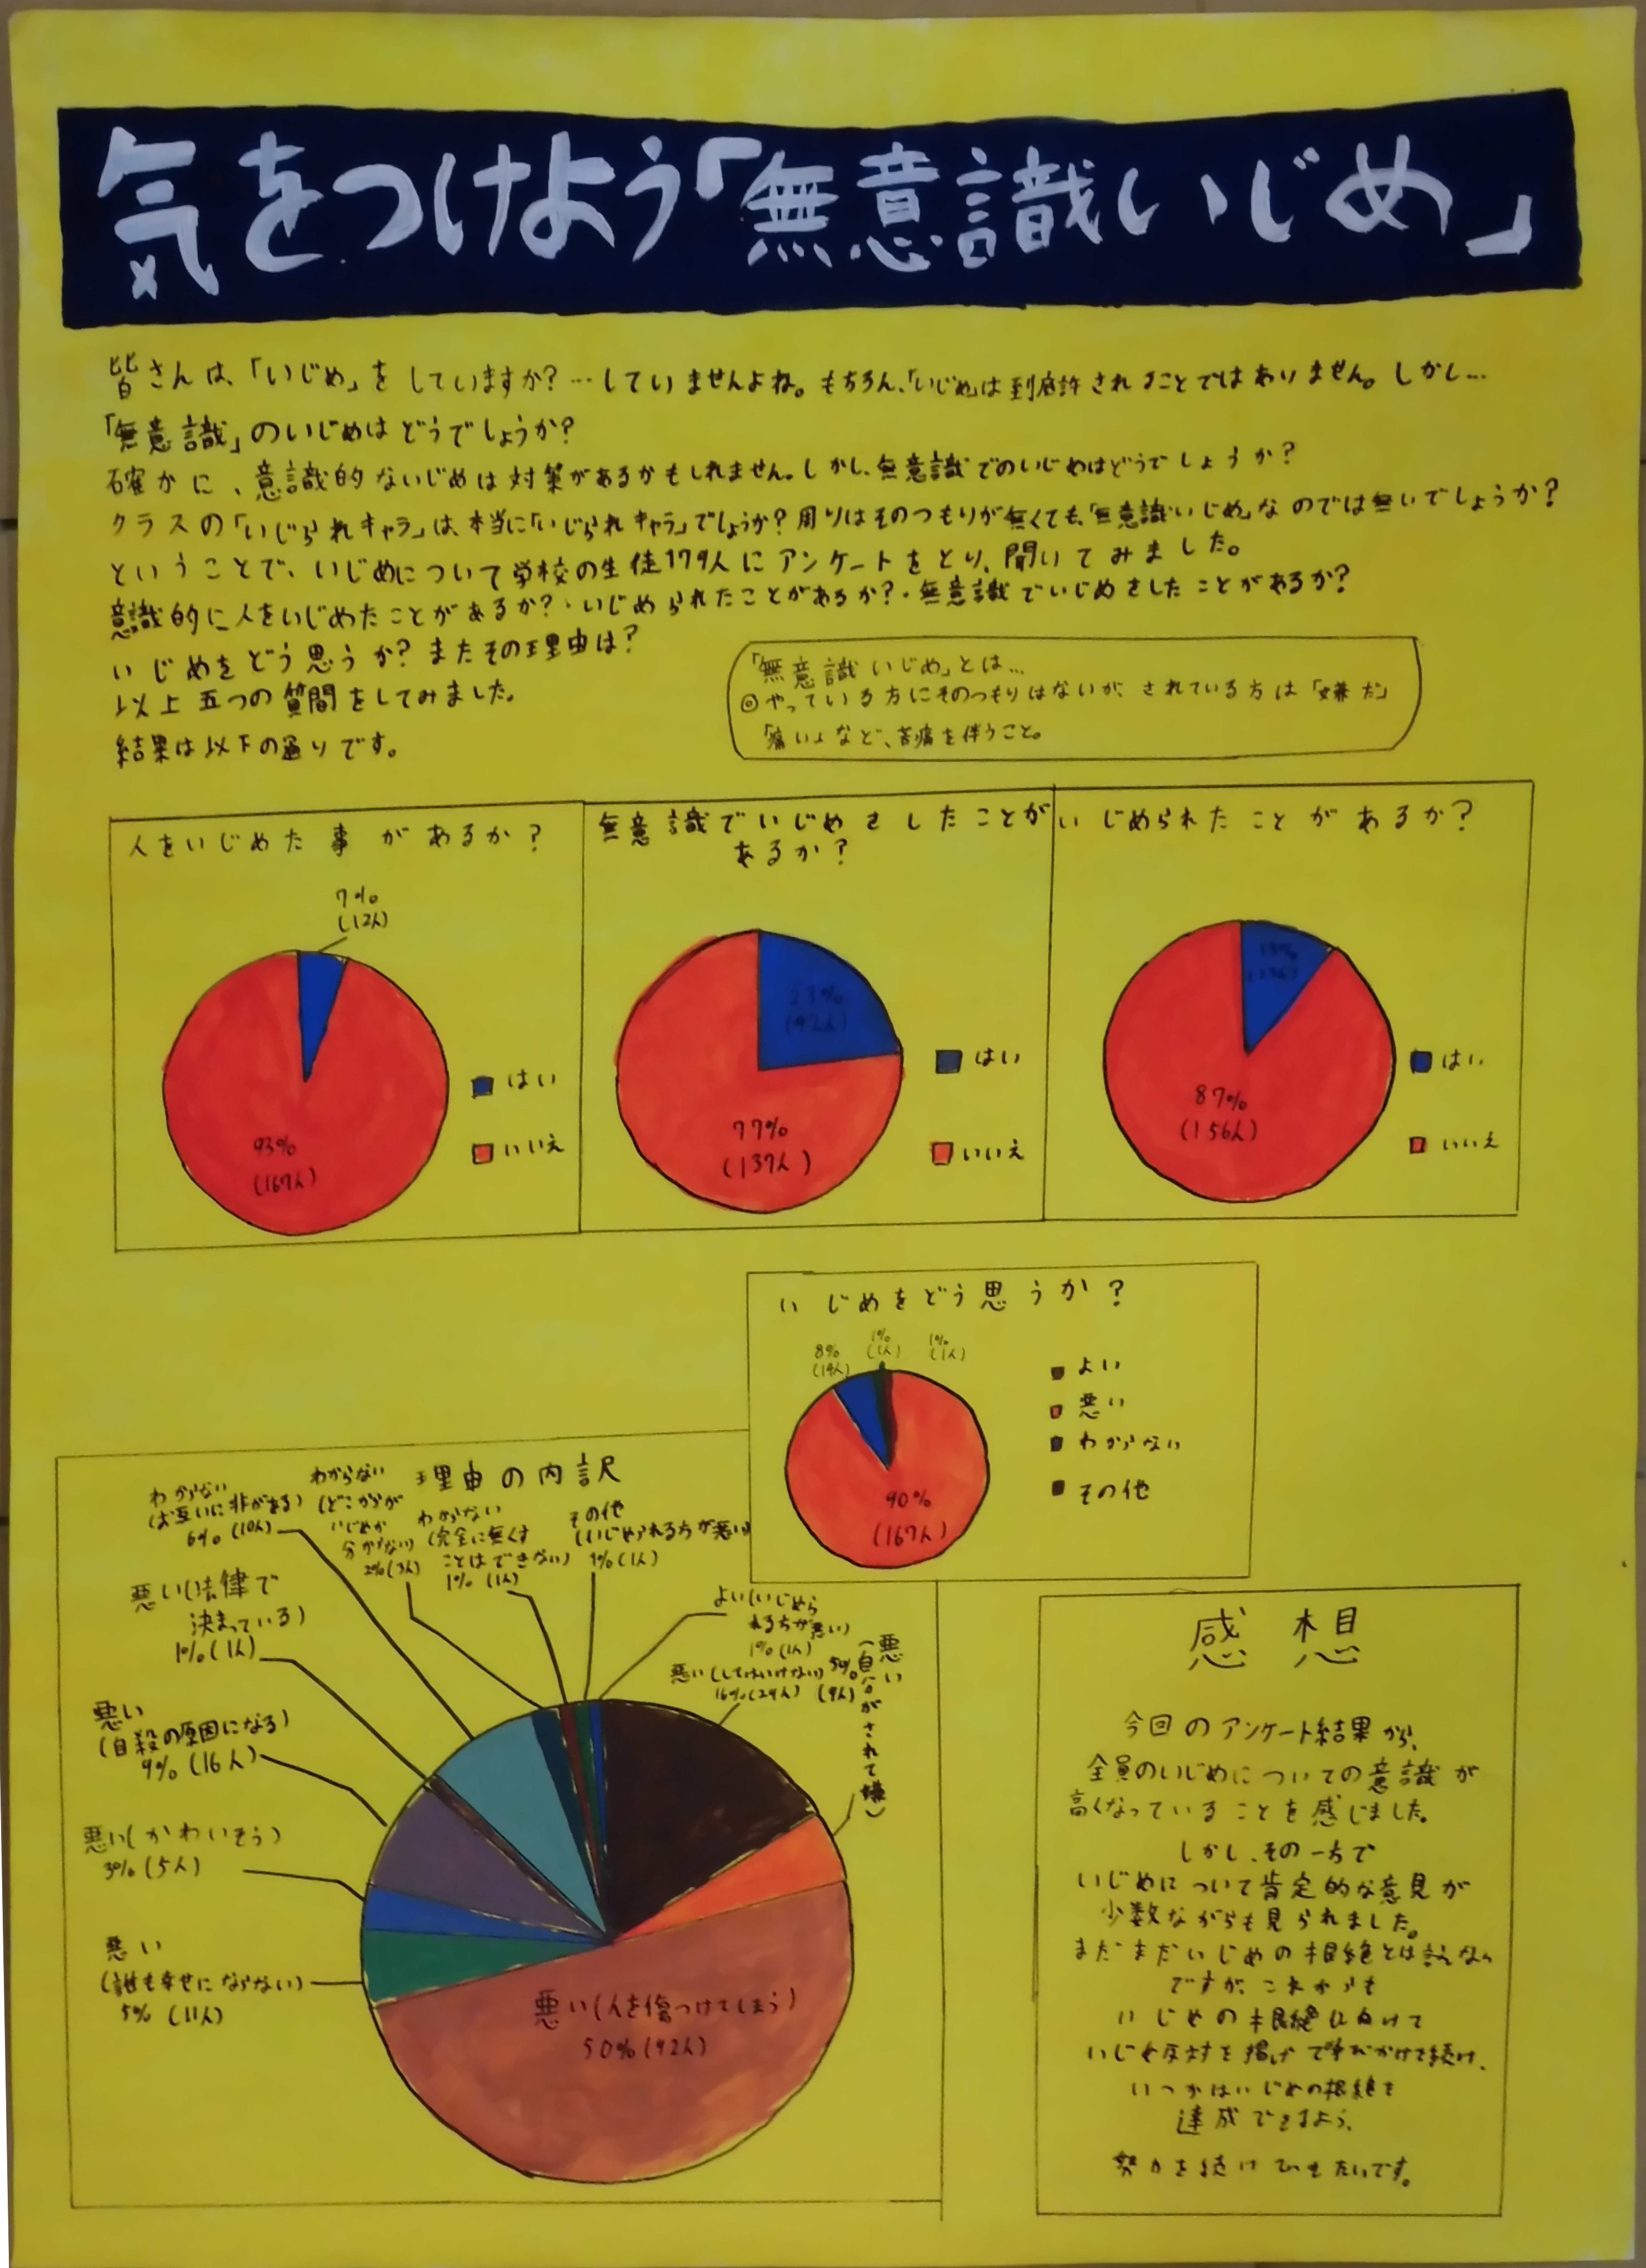 気をつけよう「無意識いじめ」
皆さんは、「いじめ」をしていますか?…していませんよね。もちろん、「いじめ」は到底許されることではありません。しかし…
「無意識」のいじめはどうでしょうか?
確かに、意識的ないじめは対策があるかもしれません。しかし、無意識でのいじめはどうでしょうか?
クラスの「いじられキャラ」は、本当に「いじられキャラ」でしょうか?周りはそのつもりが無くても、「無意識いじめ」なのでは無いでしょうか?
ということで、いじめについて学校の生徒179人にアンケートをとり、聞いてみました。
意識的に人をいじめたことがあるか?・いじめられたことがあるか?・無意識でいじめをしたことがあるか?
いじめをどう思うか?またその理由は?
以上五つの質問をしてみました。
結果は以下の通りです。
「無意識いじめ」とは…
◎やっている方にそのつもりはないが、されている方は「嫌だ」
「痛い」など、苦痛を伴うこと。
人をいじめた事があるか?
7%
(12人)
93%
(167人)
はい
いいえ
無意識でいじめをしたことが
あるか?
23%
(42人)
77%
(137人)
はい
いいえ
いじめられたことがあるか?
87%
(156人)
はい
いいえ
いじめをどう思うか?
8%
(14人)
1%
(1人)
1%
(1人)
90%
(167人)
よい
悪い
わからない
その他
理由の内訳
わからない
(お互いに非がある)
6% (10人)
わからない
(どこからが
いじめか
分からない)
2%(3人)
わからない
(完全に無くす
ことはできない)
1% (1人)
その他
(いじめられる方が悪い)
1%(1人)
よい(いじめら
れる方が悪い)
1%(1人)
悪い(してはいけない)
16%(29人)
悪い
(自分がされて嫌)
5%
(9人)
悪い(法律で
決まっている)
1%(1人)
悪い
(自殺の原因になる)
9% (16人)
悪い(かわいそう)
3% (5人)
悪い
(誰も幸せにならない)
5% (11人)
悪い(人を傷つけてしまう)
50%(92人)
感想
今回のアンケート結果から、
全員のいじめについての意識が
高くなっていることを感じました。
しかし、その一方で
いじめについて肯定的な意見が
少数ながらも見られました。
まだまだいじめの根絶とは
ですが、これからも
いじめの根絶に向けて
いじめ反対を掲げ て を続け、
いつかはいじめの根絶を
達成できるよう、
努力を続け たいです。